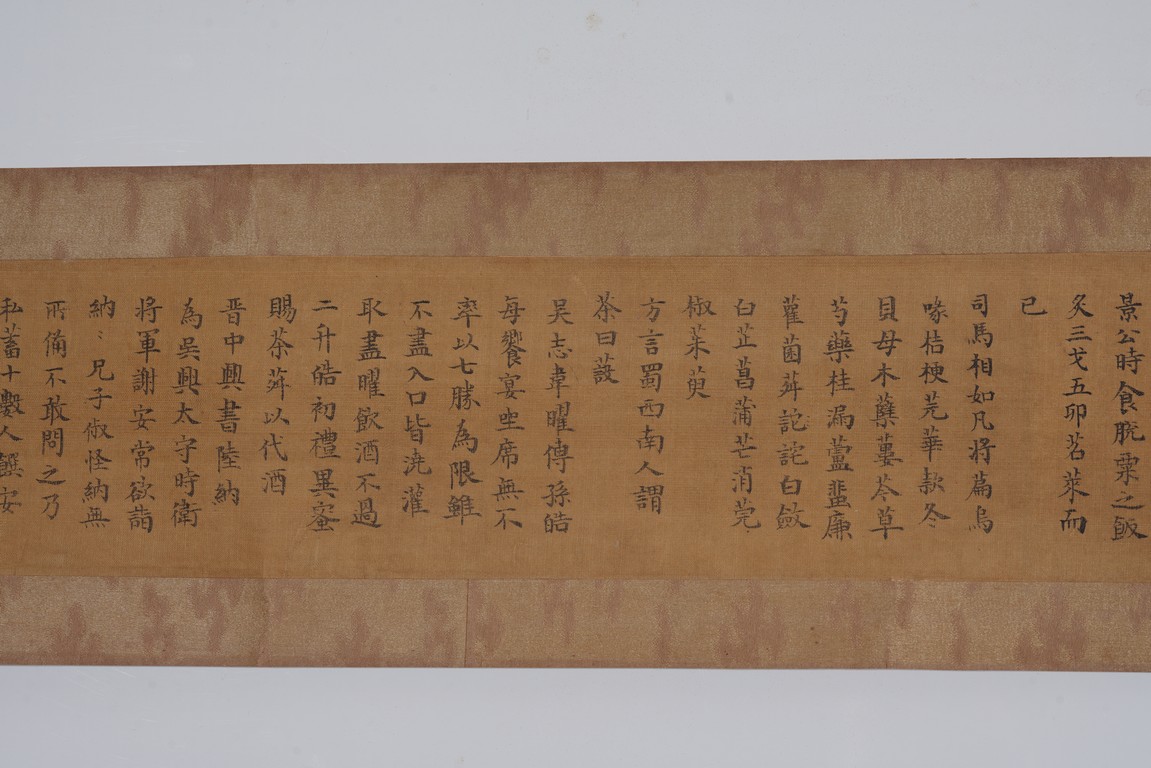 景公時食脫粟之飯
炙三戈五卵茗菜而
已
司馬相如凡將篇烏
喙桔梗芫華款冬
貝母木蘗蔞芩草
芍藥桂漏蘆蜚廉
雚菌荈詫詫白斂
白芷菖蒲芒消莞
椒茱萸
方言蜀西南人謂
茶曰蔎
吳志韋曜傳孫皓
每饗宴坐席無不
率以七勝為限雖
不盡入口皆澆灌
取盡曜飲酒不過
二升皓初禮異密
賜茶荈以代酒
晉中興書陸納
為吳興太守時衛
將軍謝安常欲詣
納〻兄子俶怪納無
所備不敢問之乃
私蓄十數人饌安